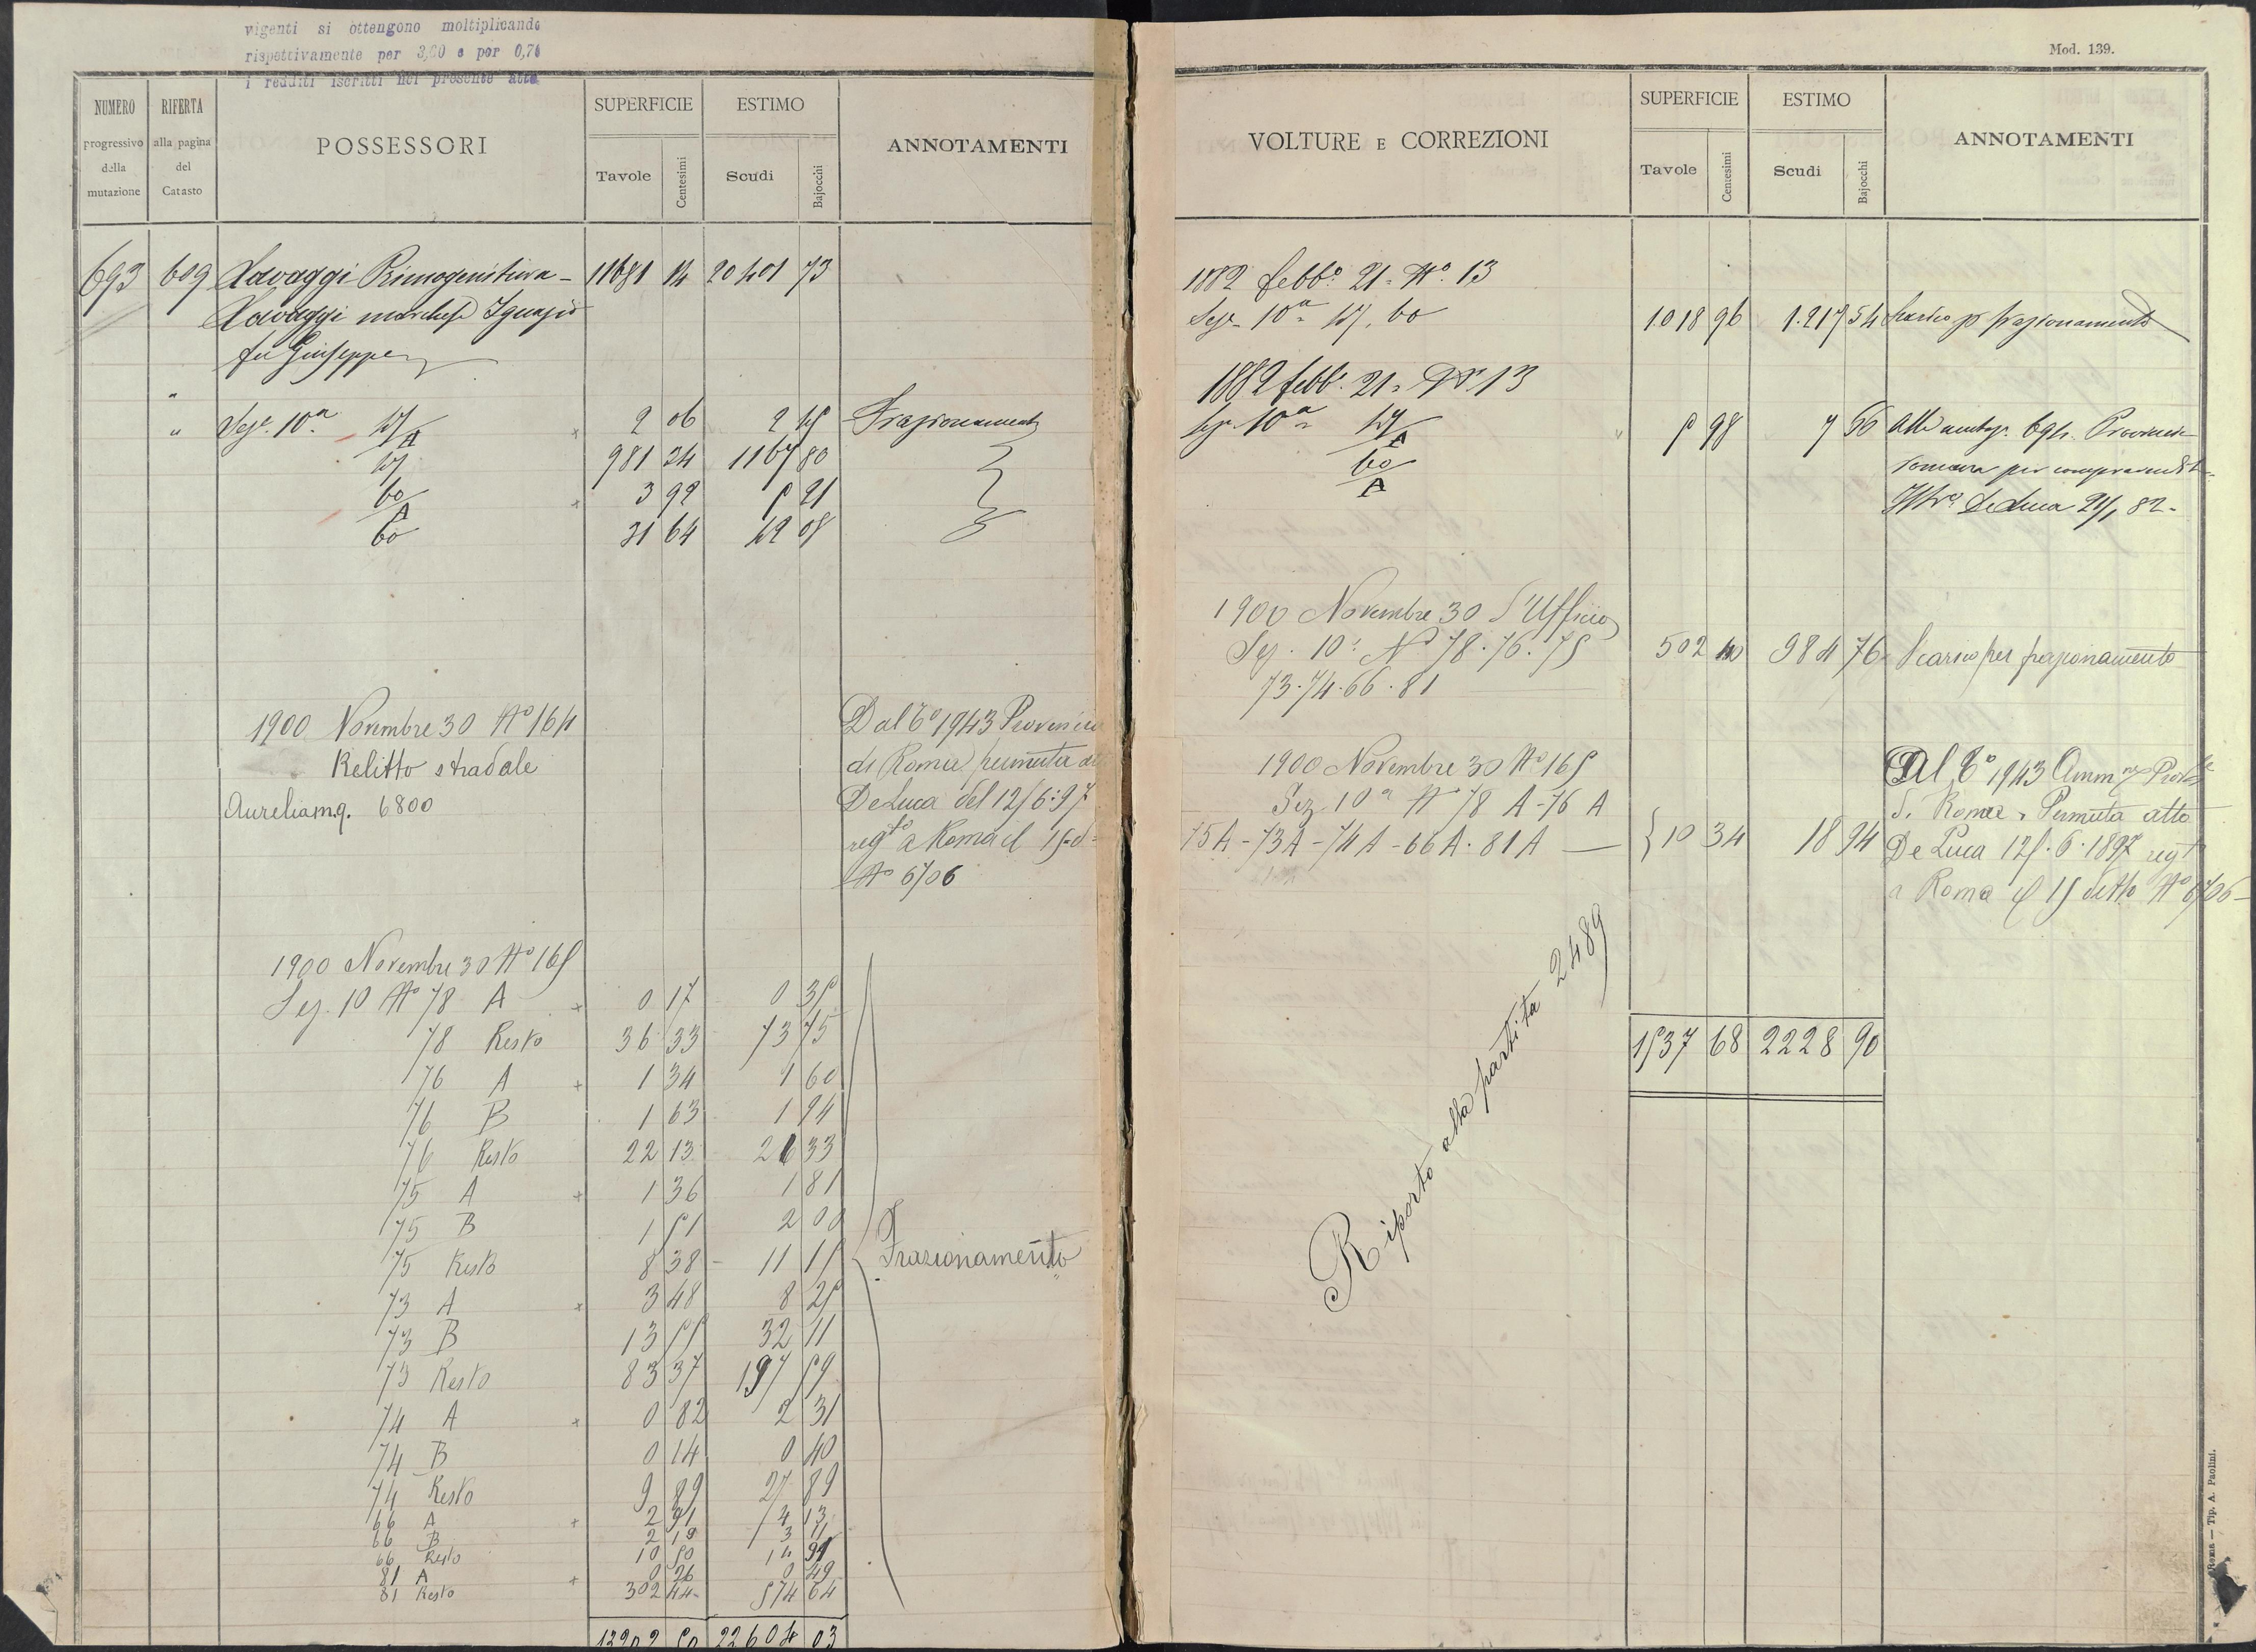 vigenti si ottengono moltiplicando
rispettivamente per 3,60 e per 0,76
i redditi iscritti nel presente atto
NUMERO progressivo della mutazione
RIFERTA alla pagina del Catasto
POSSESSORI
SUPERFICIE
Tavole Centesimi
ESTIMO
Scudi Bajocchi
ANNOTAMENTI
693 609 Lavaggi Primogenitura - 11681 14 20401 73
Lavaggi marchese Ignazio
fu Giuseppe
"
" Sez. 10a 47/A 2 06 2 45 Frazionamento
47 981 24 1167 80
60/A 3 92 5 21
60 31 64 42 08
1900 Novembre 30 No 164
Relitto stradale
Aurelia mq. 6800
Dal To 1943 Provincia
di Roma permuta
De Luca del 12/6:97
regto a Roma il 15 do
No 6706
1900 Novembre 30 No 165
Sez. 10 No 78 A 0 17 0 35
78 Resto 36 33 73 75
76 A 1 34 1 60
76 B 1 63 1 94
76 Resto 22 13 26 33
75 A 1 36 1 81
75 B 1 51 2 00
75 Resto 8 38 11 15
Frazionamento
73 A 3 48 8 25
73 B 13 55 32 11
73 Resto 83 37 197 59
74 A 0 82 2 31
74 B 0 14 0 40
74 Resto 9 89 27 89
66 A 2 91 4 13
66 B 2 19 3 11
66 Resto 10 50 14 91
81 A 0 26 0 49
81 Resto 302 44 574 64
12902 50 22604 03
Mod. 139.
VOLTURE E CORREZIONI
SUPERFICIE
Tavole Centesimi
ESTIMO
Scudi Bajocchi
ANNOTAMENTI
1882 febbo 21 = No 13
Sez. 10a 47. 60 1.018 96 1.217 54 Scarico p frazionamento
1882 febb. 21 = No 13
Sez. 10a 47/A 5 98 7 66 Alla mutaz. 694. Provincia
60/A
romana per compravendita
De Luca 21/1 82.
1900 Novembre 30 d'Ufficio
Sez. 10a No 78. 76. 75 502 40 984 76 Scarico per frazionamento
73. 74. 66. 81
1900 Novembre 30 No 165
Sez 10a No 78 A - 76 A
75A - 73A - 74A - 66A. 81A 10 34 18 94
Al To 1943 Ammne Prole
di Roma, Permuta atto
De Luca 12. 6. 1897 regto
a Roma il 15 detto No 6706
Riporto alla partita 2489
1537 68 2228 90
Roma — Tip. A. Paolini.